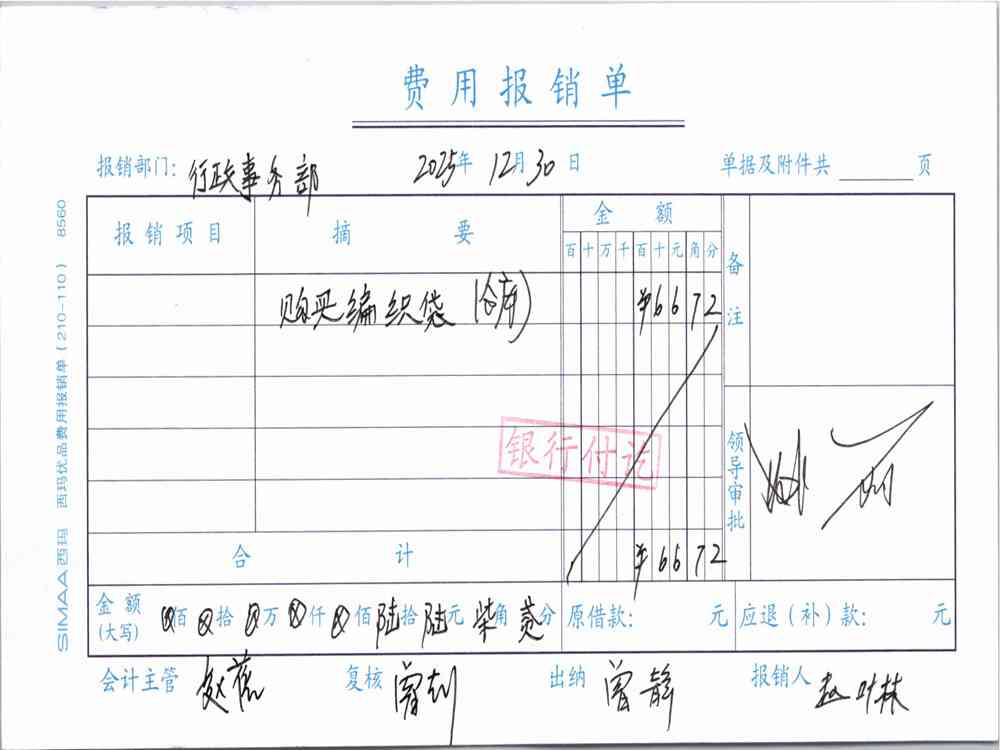 费用报销单
报销部门: 行政事务部 2025年 12月 30日 单据及附件共 页
报销项目 摘要 金额 备注
百十万千百十元角分
购买编织袋(冷库) ¥66 72
银行付讫
领导审批
合计 ¥66 72
金额(大写) ⊗佰⊗拾⊗万⊗仟⊗佰陆拾陆元柒角贰分 原借款: 元 应退(补)款: 元
会计主管 赵 复核 曾 出纳 曾静 报销人 赵叶林
SIMAA西玛 西玛优品费用报销单(210-110) 8560